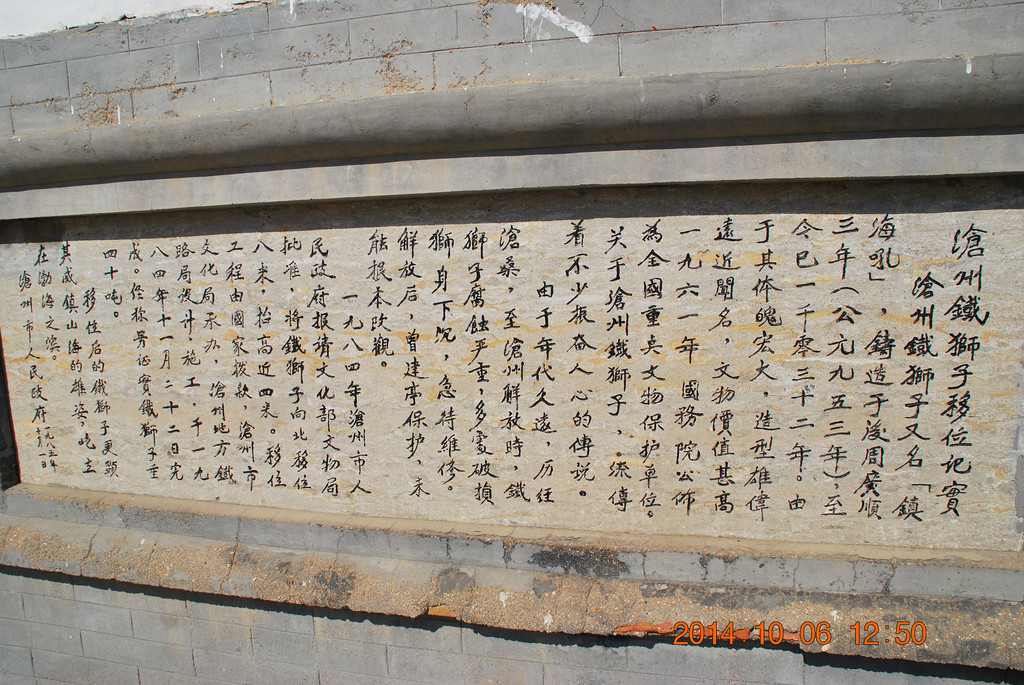 滄州鐵獅子移位记實
滄州鐵獅子又名「鎮
海吼」，鑄造于後周廣順
三年(公元九五三年)，至
今已一千零三十二年。由
于其体魄宏大，造型雄偉
遠近聞名，文物價值甚高
一九六一年國務院公佈
為全國重点文物保护单位。
关于滄州鐵獅子，流傳
着不少振奋人心的傳说。
由于年代久遠，历经
滄桑，至滄州解放時，鐵
獅子腐蝕严重，多處破損
解放后，曾建亭保护，未
獅身下沉，急待維修。
能根本改觀。
一九八四年滄州市人
民政府报请文化部文物局
批准，将鐵獅子向北移位
八米，抬高近四米。移位
工程由國家拨款，滄州市
文化局承办，滄州地方鐵
路局设计，施工，于一九
八四年十一月二十二日完
成。经称另证實鐵獅子重
四十吨。
移位后的鐵獅子更顕
其威鎮山海的雄姿，屹立
在渤海之滨。
滄州市人民政府一九八五年
十月一日
2014 10 06 12:50